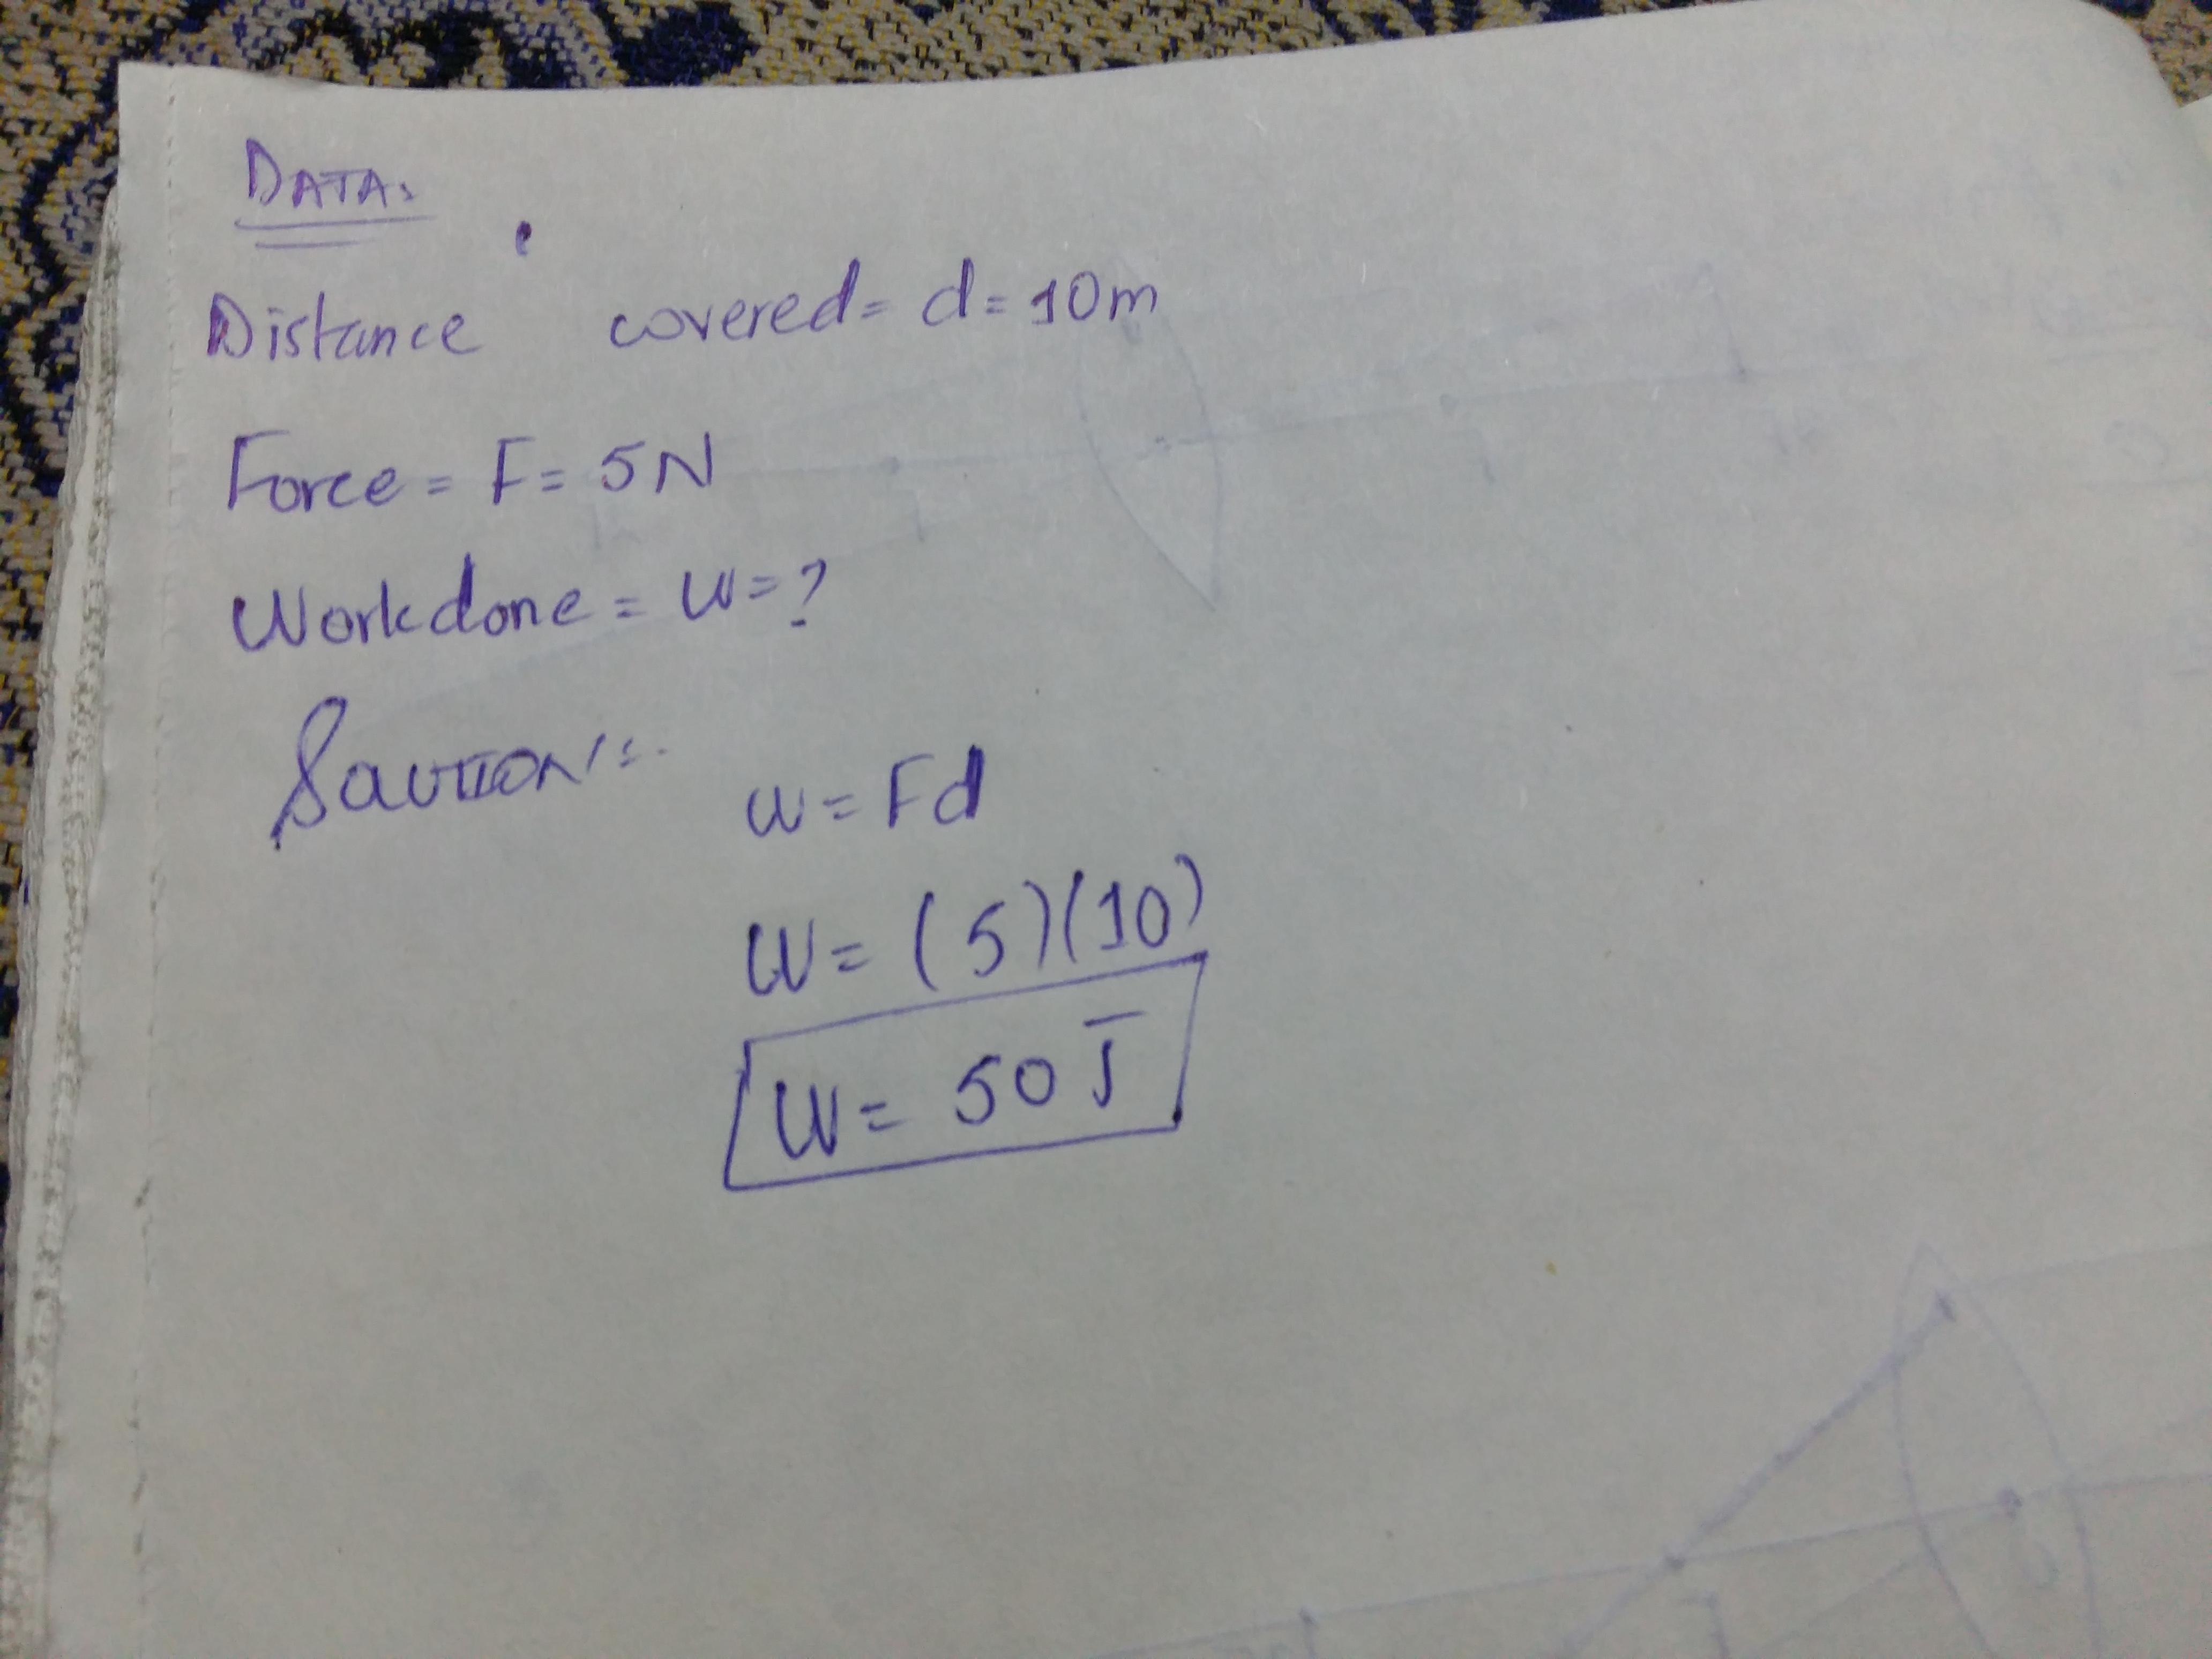 DATA:
Distance covered = d = 10m
Force = F = 5N
Workdone = W = ?
SOLUTION:-
W = Fd
W = (5)(10)
W = 50 J